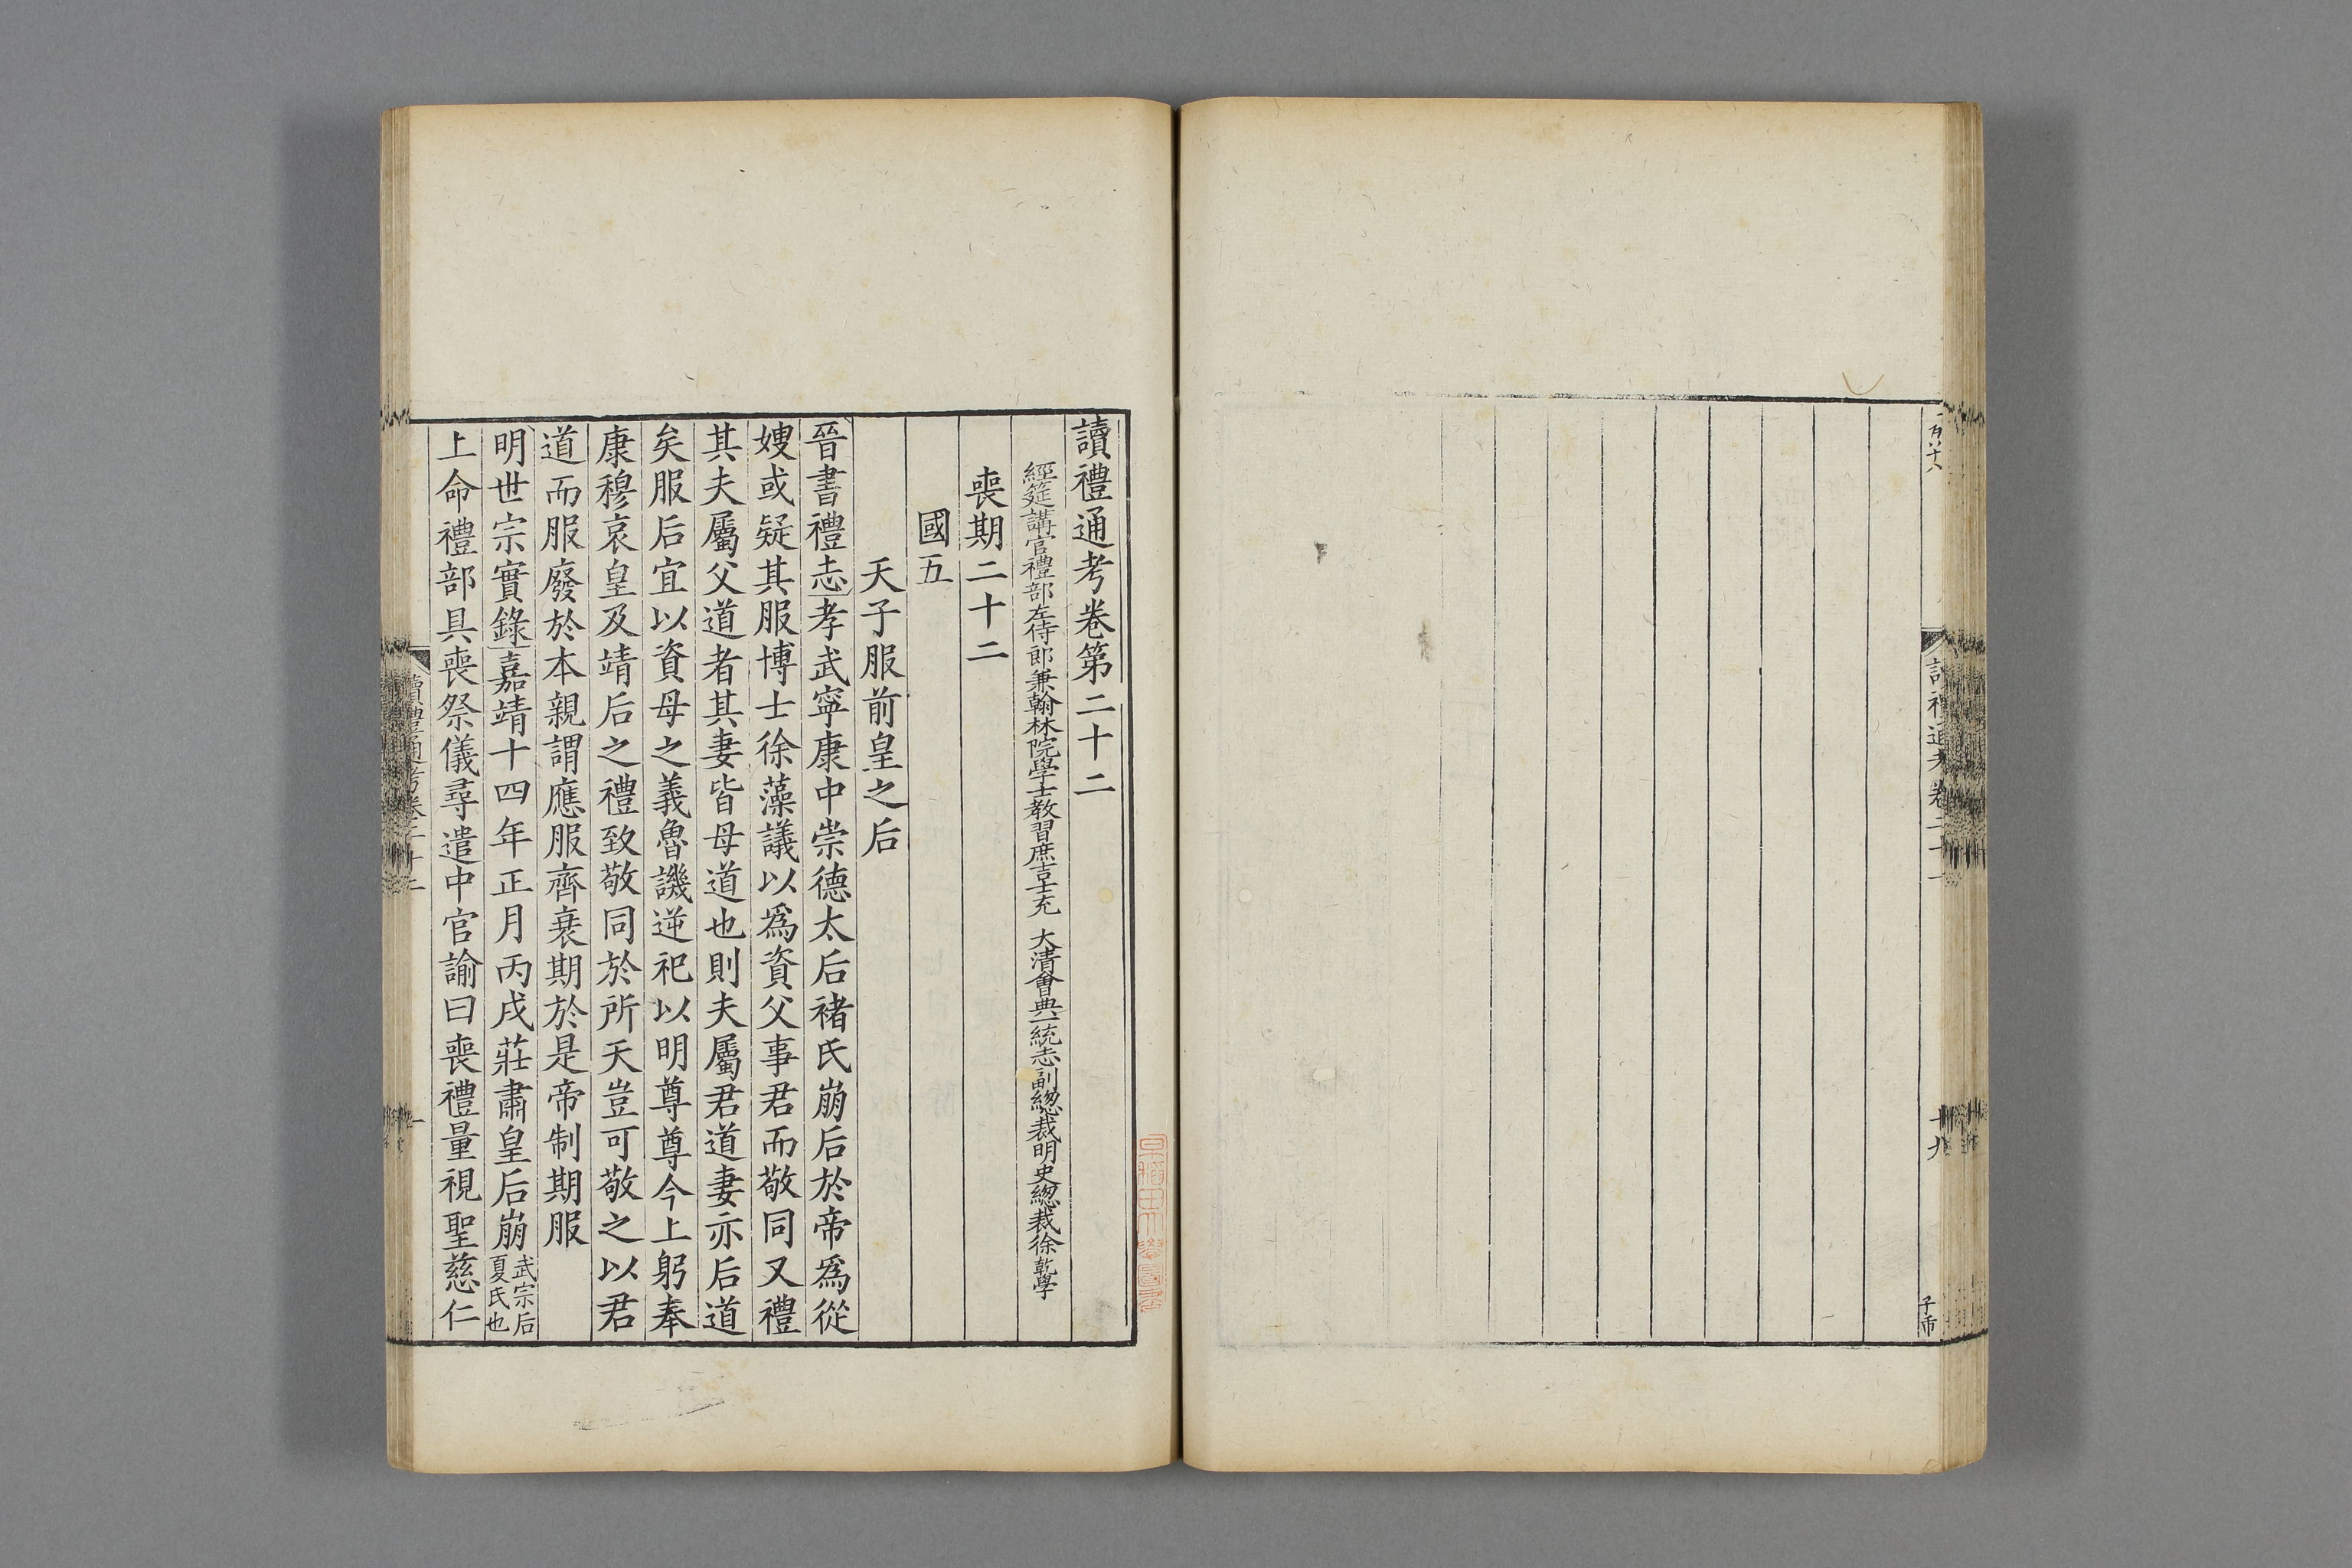 十九
讀禮通考卷第二十二
經筵講官禮部左侍郎兼翰林院學士教習庶吉士充 大清會典一統志副總裁明史總裁徐乾學
喪期二十二
國五
天子服前皇之后
晉書禮志孝武寧康中崇德太后褚氏崩后於帝爲從
嫂或疑其服博士徐藻議以爲資父事君而敬同又禮
其夫屬父道者其妻皆母道也則夫屬君道妻亦后道
矣服后宜以資母之義魯譏逆祀以明尊尊今上躬奉
康穆哀皇及靖后之禮致敬同於所天豈可敬之以君
道而服廢於本親謂應服齊衰期於是帝制期服
明世宗實錄嘉靖十四年正月丙戌莊肅皇后崩武宗后夏氏也
上命禮部具喪祭儀尋遣中官諭曰喪禮量視聖慈仁
讀禮通考卷二十二
一
早稻田大學圖書